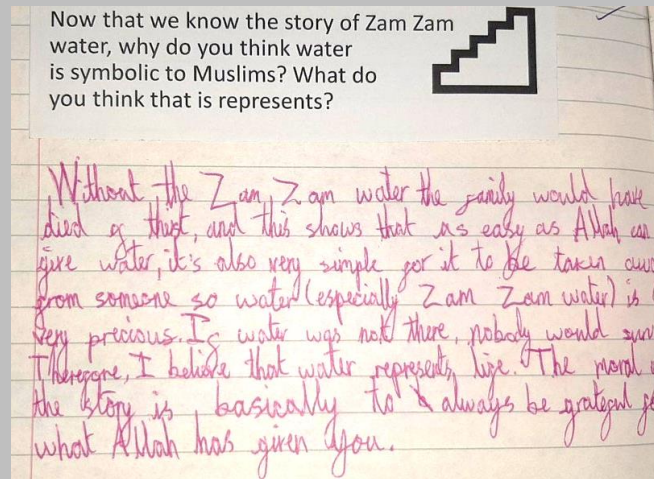 Now that we know the story of Zam Zam
water, why do you think water
is symbolic to Muslims? What do
you think that is represents?
Without the Zam Zam water the family would have
died of thirst, and this shows that as easy as Allah can
give water, it's also very simple for it to be taken
from someone so water (especially Zam Zam water) is
very precious. If water was not there, nobody would
Therefore, I believe that water represents life. The moral
the story is basically to always be grateful
what Allah has given you.